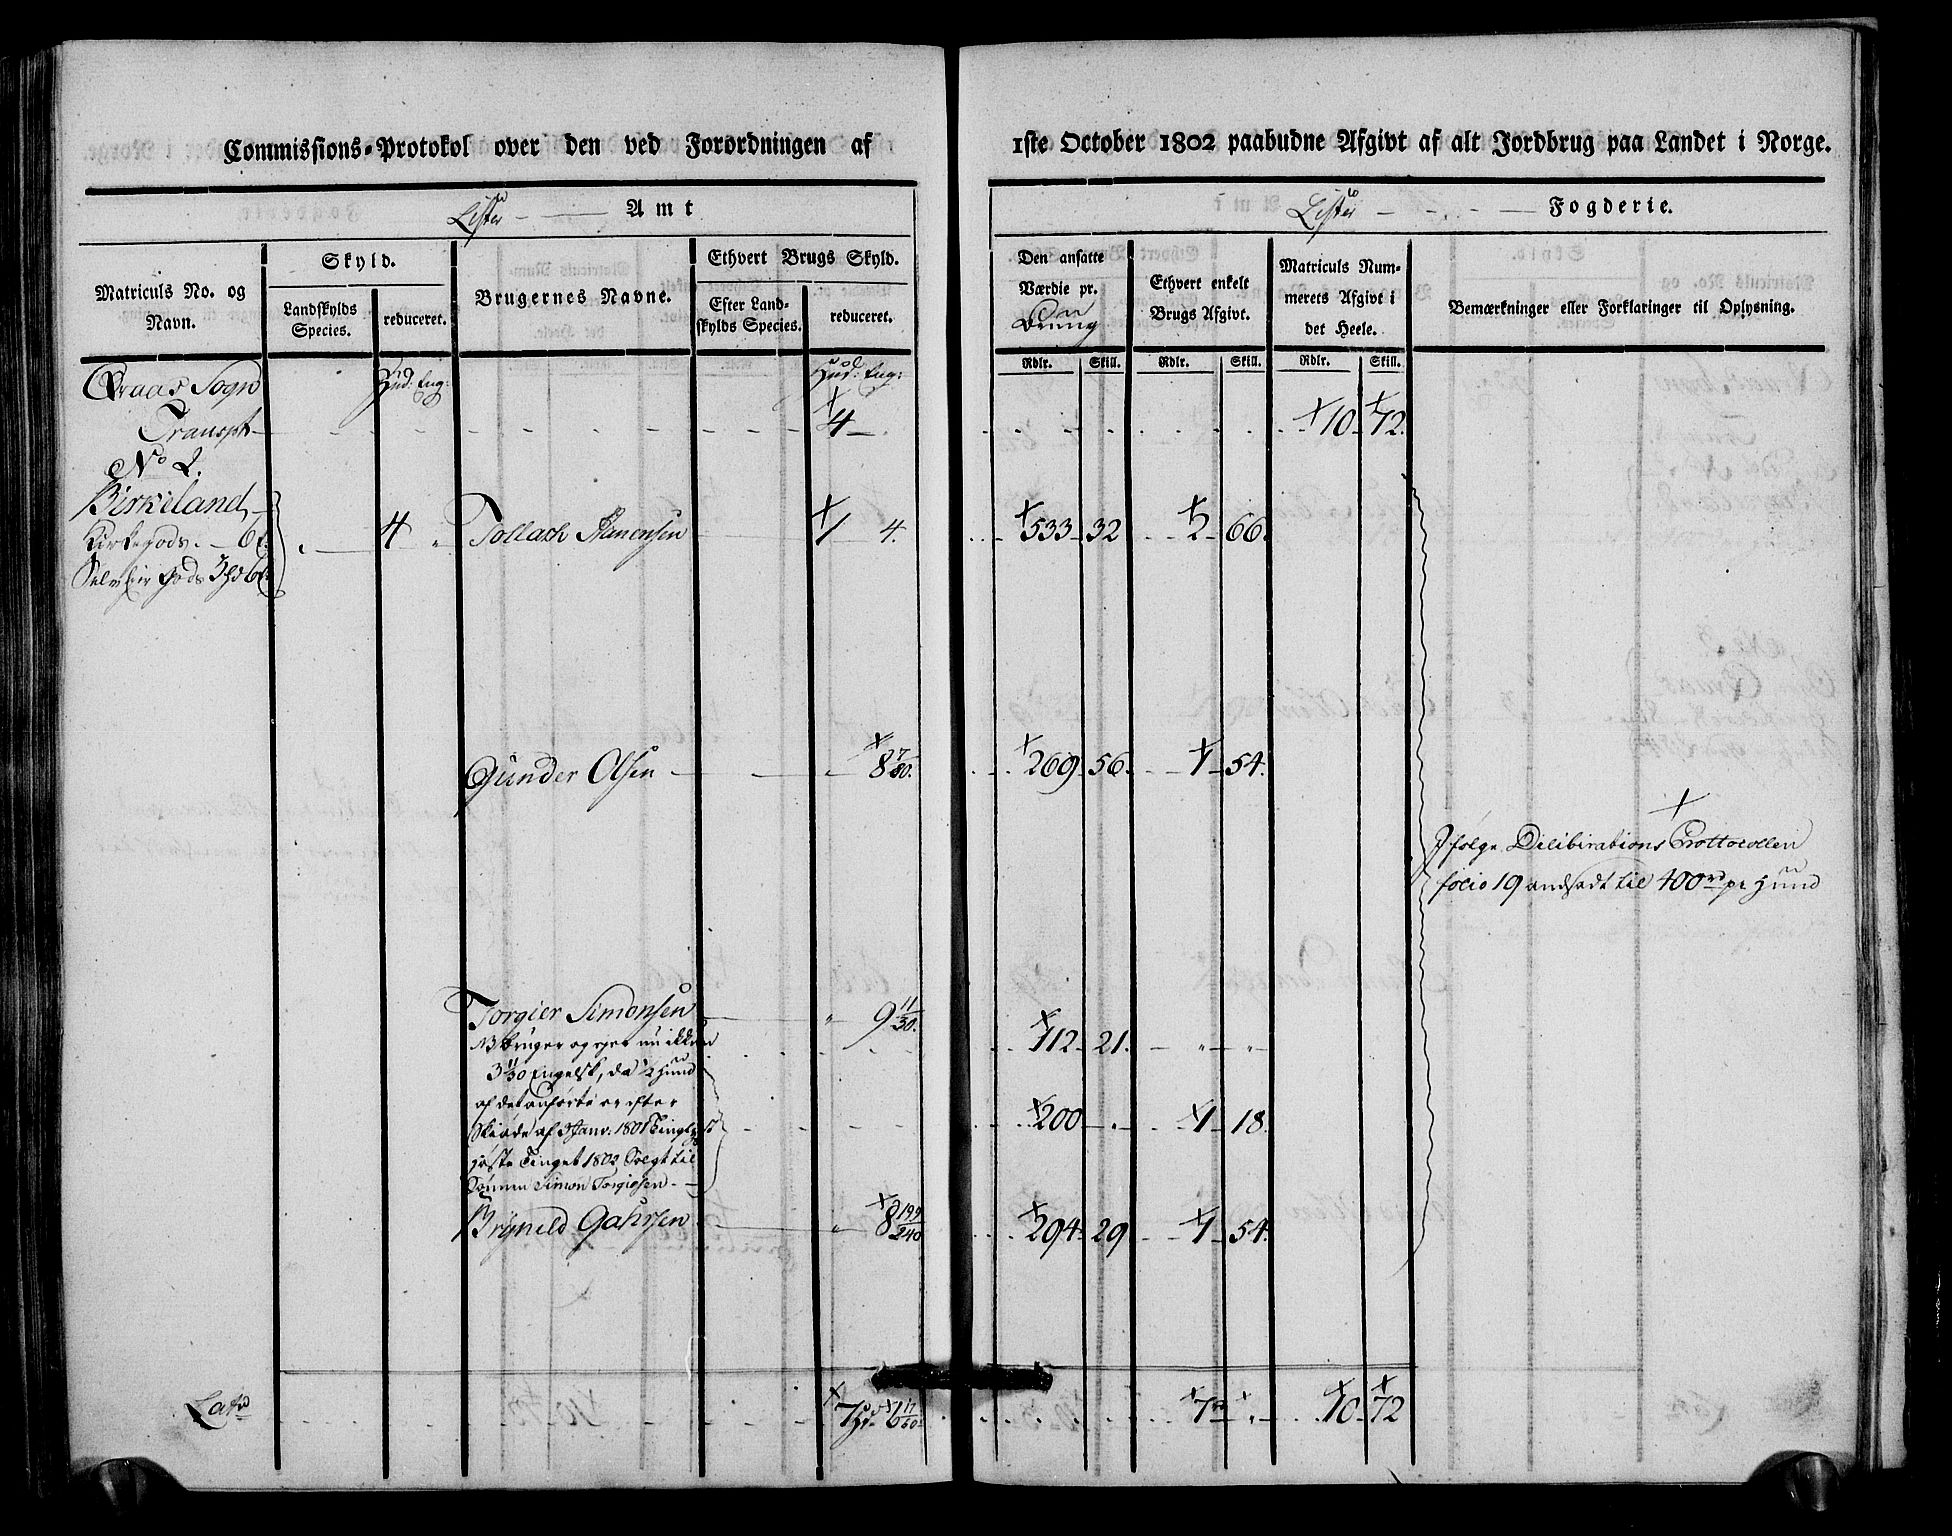 Commissions-Protokol over den ved Forordningen af
1ste October 1802 paabudne Afgivt af alt Jordbrug paa Landet i Norge.
Lister Amt
Lister Fogderie.
Matriculs No. og Navn.
Skyld.
Landskylds Species.
reduceret.
Brugernes Navne.
Ethvert Brugs Skyld.
Efter Landskylds Species.
reduceret.
Den ansatte Værdie pr.
Ethvert enkelt Brugs Afgivt.
Matriculs Nummerets Afgivt i det Heele.
Bemærkninger eller Forklaringer til Oplysning.
Rdlr. Skill. Rdlr. Skill. Rdlr. Skill.
Qvaas Sogn Hud: Eng: Hud: Eng:
Transpt 4 10 72.
No 2.
Birkeland
Kirkegods 6 4 Tollach 1 4. 533 32 2 66.
Selveier Gods 3 hd 6
Gunder Olsen 8 7/80. 269 56. 1 54.
Ifølge Deliberations Prottocollen
folio 19 andsadt til 400 rd pr Hund
Torgier Simonsen 9 11/30.
NB bruger og eyer nu ikkun 112 21.
3 11/30 Engelsk, da 1/2 Hud
af det anførte er efter 200 1 18.
Skiøde af 3 Janv: 1801 Tinglyst
høste Tinget 1802 Solgt til
Sønnen Simon Torgiersen.
Bryneld 8 199/240 294 29 1 54.
Lats 7 hd 6 17/60 7 rd 10 72